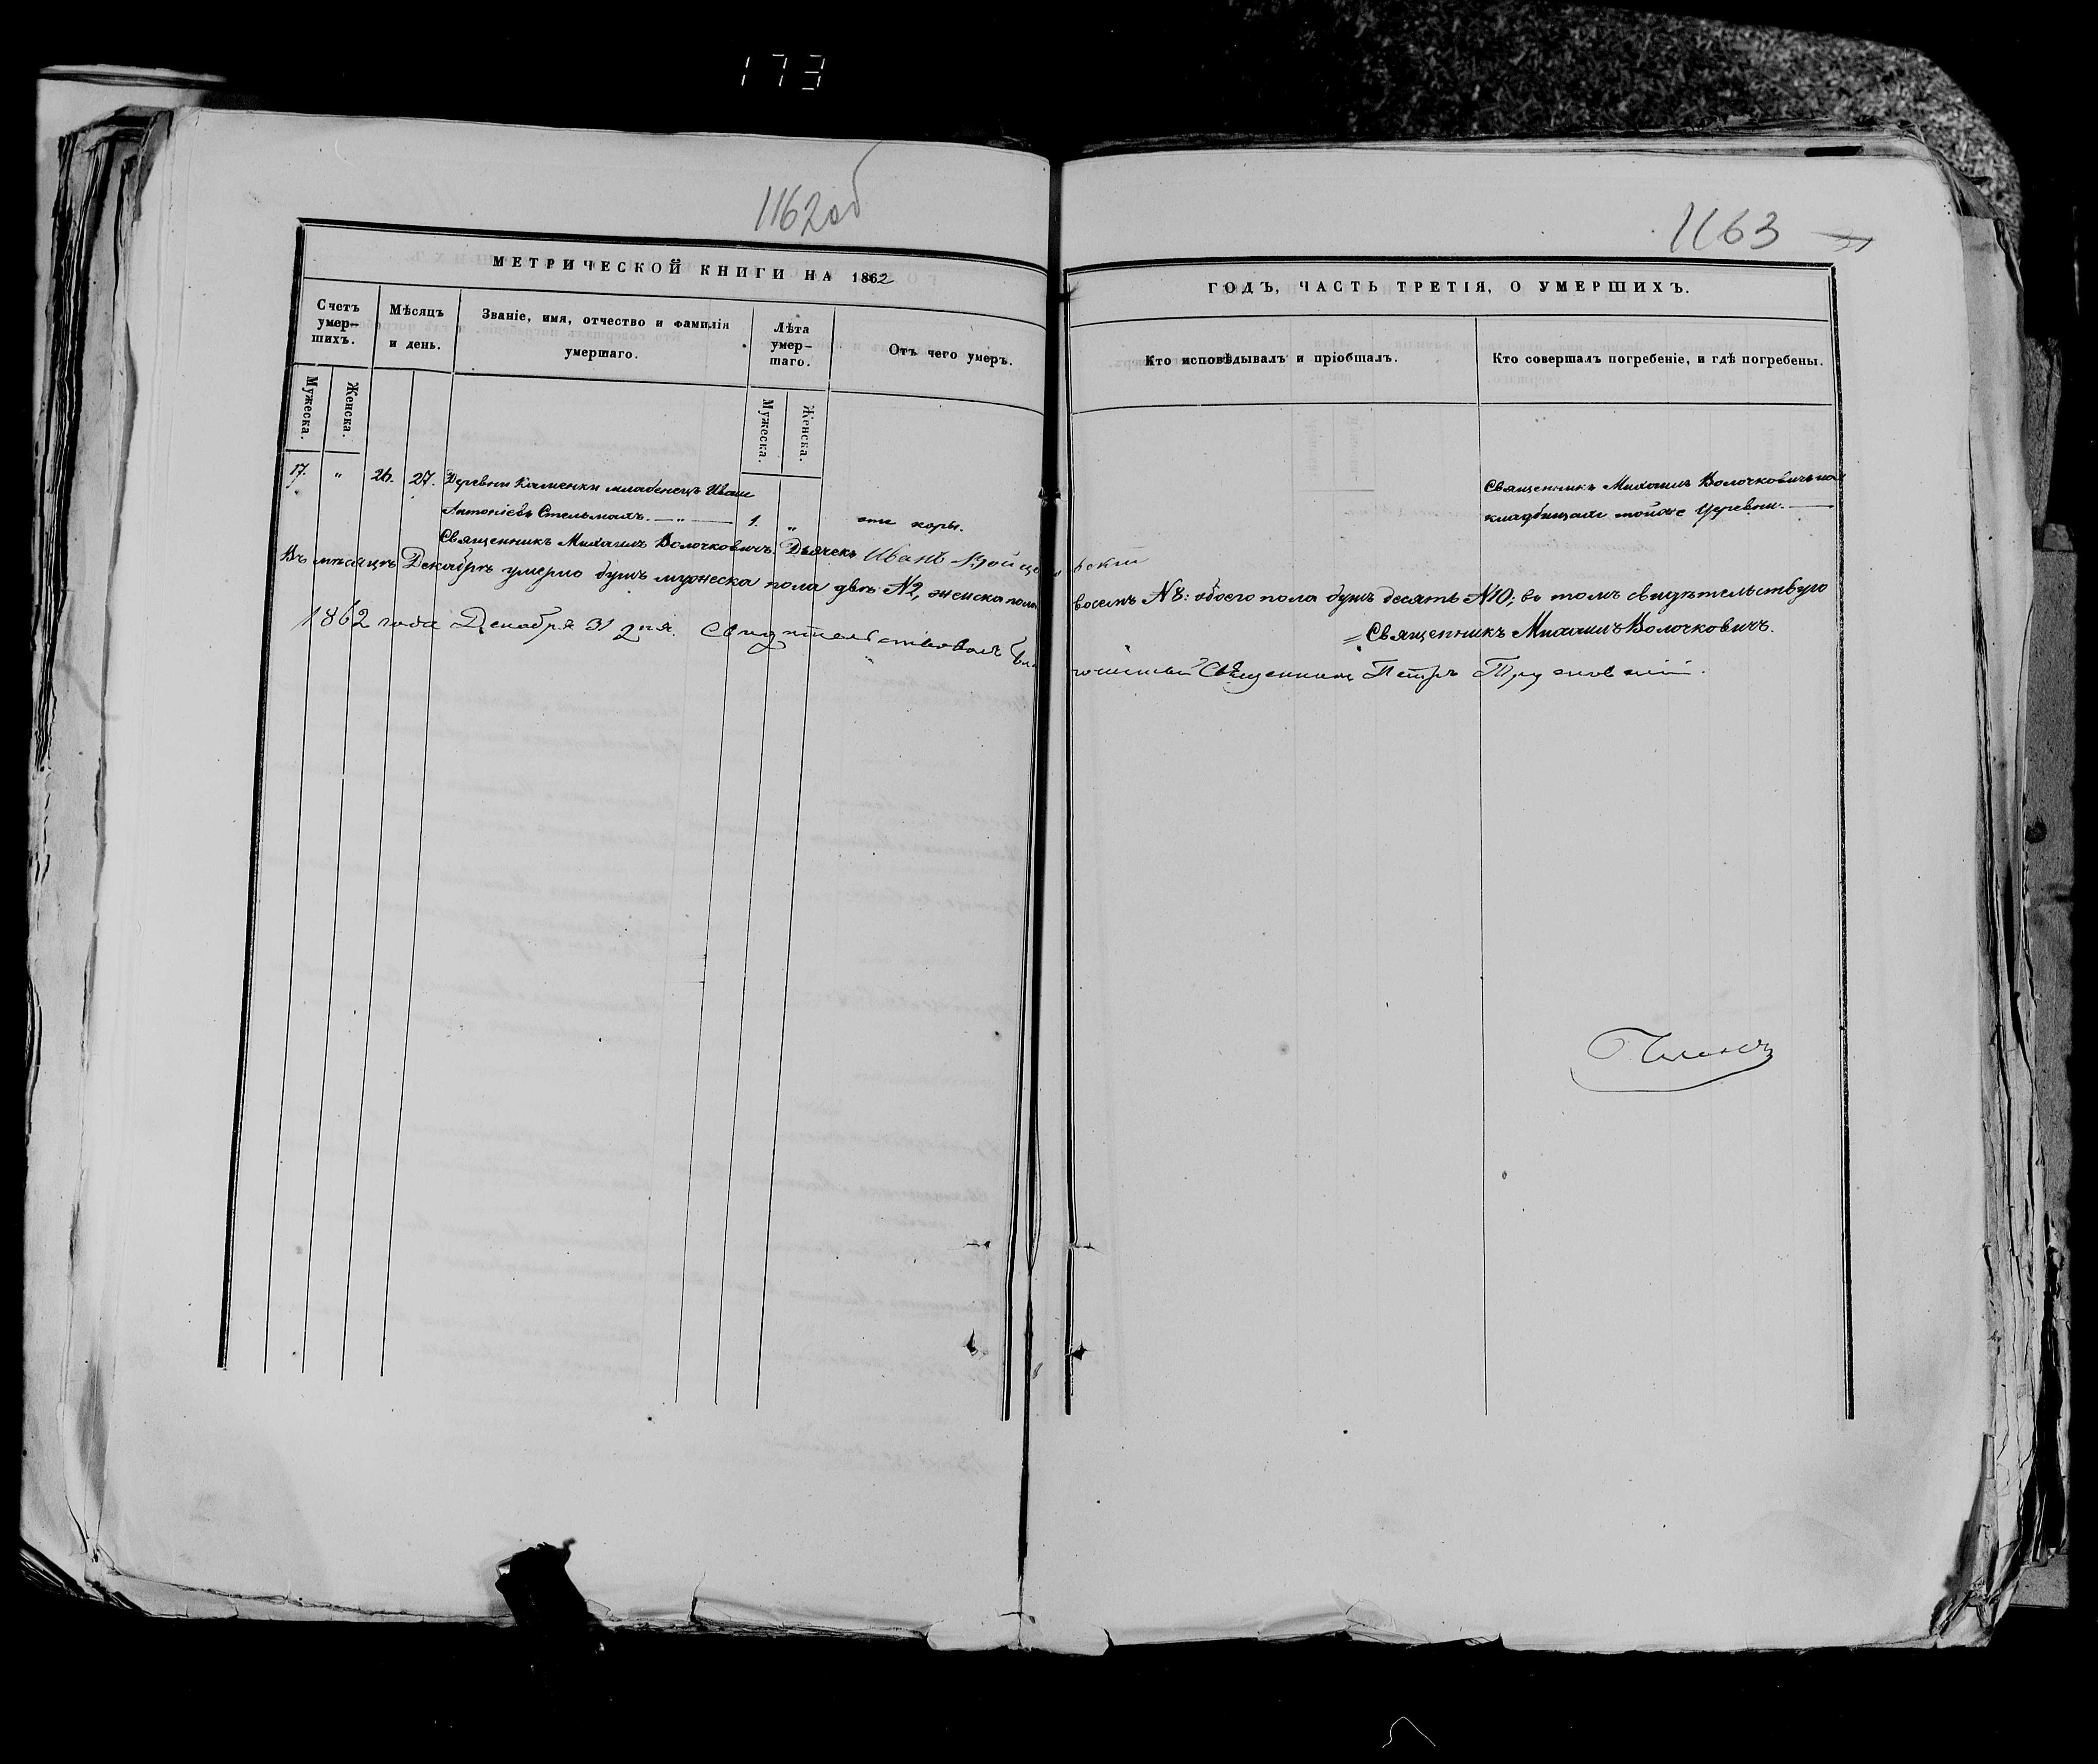 173
1162 об
МЕТРИЧЕСКОЙ КНИГИ НА 1862
Счетъ умер-шихъ.
Мѣсяцъ и день.
Званіе, имя, отчество и фамилія умершаго.
Лѣта умер-шаго.
Отъ чего умеръ.
Мужеска.
Женска.
Мужеска.
Женска.
17. " 26. 27. Деревни Каменки младенецъ Иванъ
Антоніевъ Стельмахъ. — " — 1. " отъ коры.
Священникъ Михаилъ Волочковичъ. Дьячекъ Иванъ
Въ мѣсяцѣ Декабрѣ умерло душъ мужеска пола двѣ N2, женска пола
1862 года Декабря 31 дня. Свидѣтельствовалъ
1163
ГОДЪ, ЧАСТЬ ТРЕТІЯ, О УМЕРШИХЪ.
Кто исповѣдывалъ и пріобщалъ.
Кто совершалъ погребеніе, и гдѣ погребены.
Священникъ Михаилъ Волочковичъ на
кладбищахъ тойже Деревни. —
восемь N8: обоего пола душъ десять N10; въ томъ свидѣтельствую
Священникъ Михаилъ Волочковичъ.
Священникъ Петръ